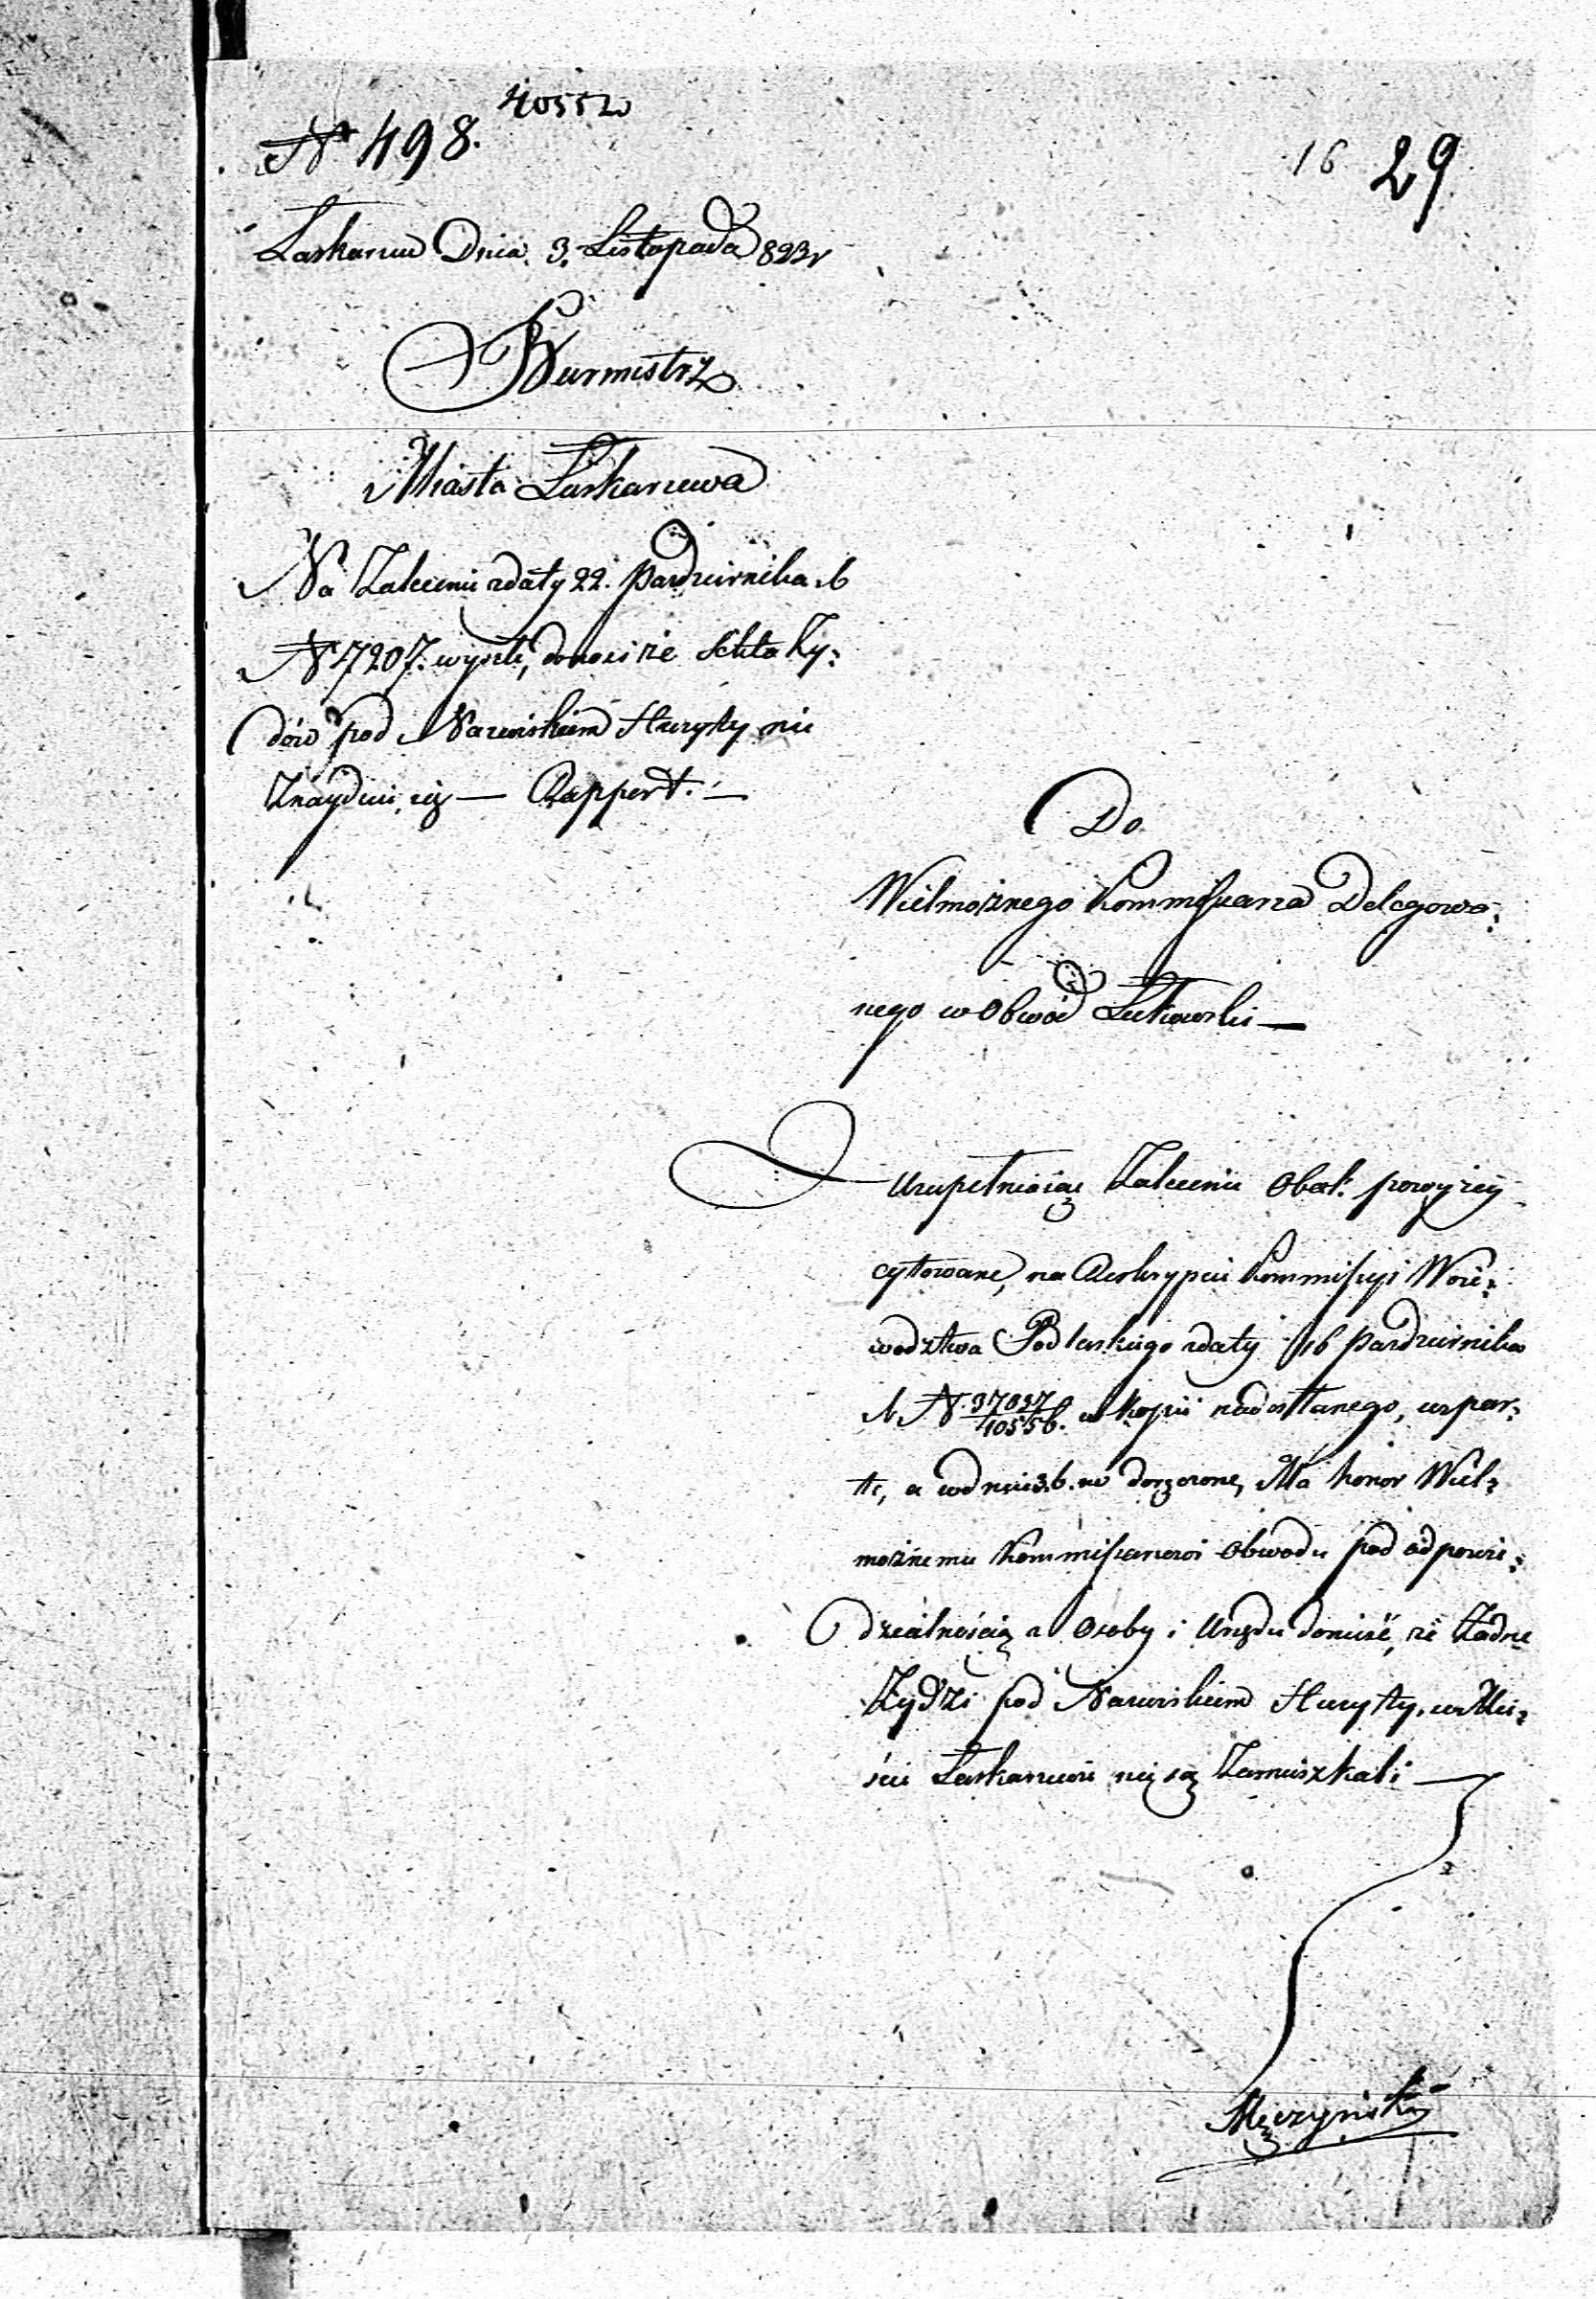 40552
№ 498.
16 29
Laskarzew Dnia 3. Listopada 823 r
Burmistrz
Miasta Laskarzewa
Na Zalecenie zdaty 22. Pazdziernika r b
N 7207. wyszłe, donosi że Sekta Ży:
dów pod Nazwiskiem Huryty nie
Znayduie się — Rapport. —
Do
Wielmożnego Kommissarza Delegowa:
nego w Obwód Łukowski —
Uzupełniaiąc Zalecenie Obok powyżey
cytowane, na Reskrypcie Kommissyi Woie:
wodztwa Podlaskiego zdaty 16 Pazdziernika
r b N. 37037/40556. w kopii nadesłanego, wspar:
te, a w dniu 3. b. m doręczone, Ma honor Wiel:
możnemu Kommissarzowi Obwodu pod odpowie:
dzialnością z Osoby i Urzędu donieść, że Żadne
Żydzi pod Nazwiskiem Huryty, w Mie:
ście Laskarzewie nie są Zamieszkali —
Męczyński